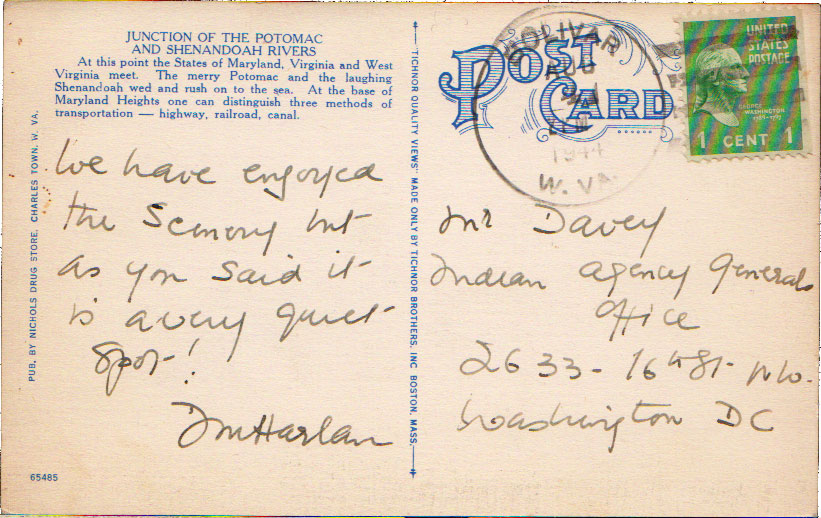 JUNCTION OF THE POTOMAC
AND SHENANDOAH RIVERS
At this point the States of Maryland, Virginia and West
Virginia meet. The merry Potomac and the laughing
Shenandoah wed and rush on to the sea. At the base of
Maryland Heights one can distinguish three methods of
transportation — highway, railroad, canal.
We have enjoyed
the Scenery but
as you said it
is a very quiet
Spot!
Harlan
65485
PUB. BY NICHOLS DRUG STORE, CHARLES TOWN, W. VA.
"TICHNOR QUALITY VIEWS" MADE ONLY BY TICHNOR BROTHERS, INC BOSTON, MASS.
POST
CARD
BOLIVAR
AUG
1944
W. VA.
UNITED
STATES
POSTAGE
GEORGE
WASHINGTON
1 CENT 1
Mr Davey
Indian Agency Generals
Office
2633 - 16th St. N.W.
Washington DC